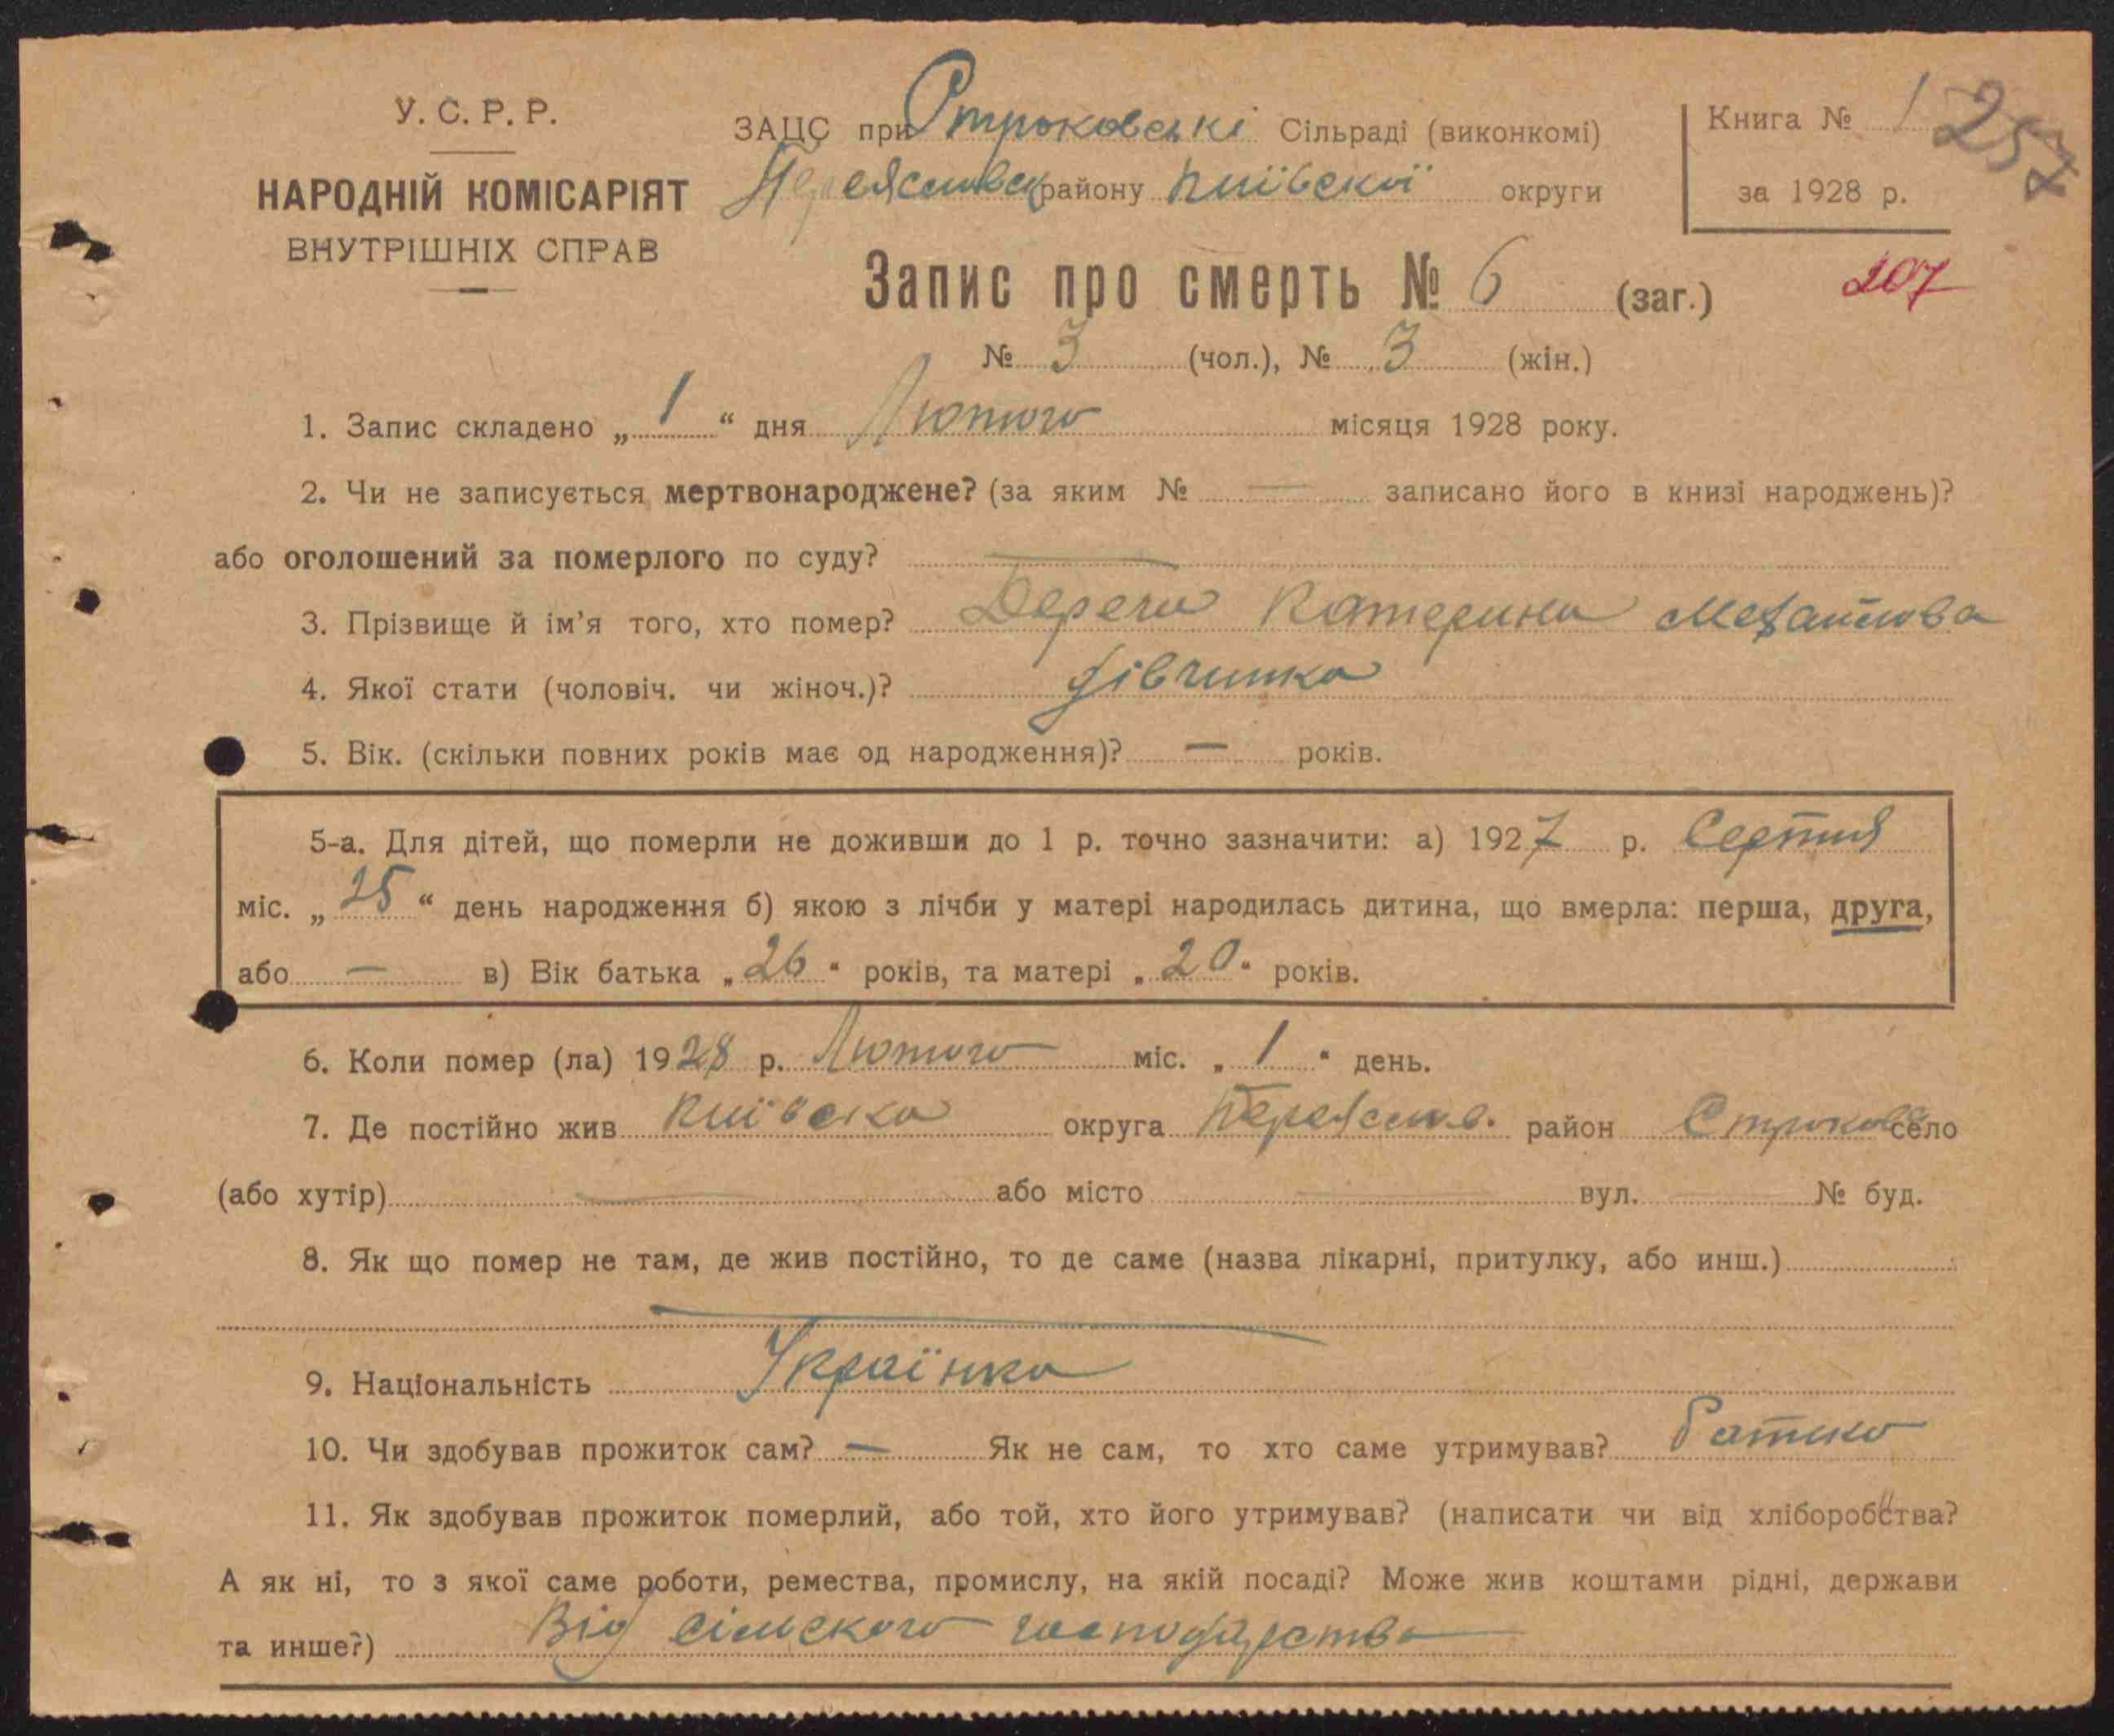 У. С. Р. Р.
НАРОДНІЙ КОМІСАРІЯТ
ВНУТРІШНІХ СПРАВ
ЗАЦС при Строковські Сільраді (виконкомі)
Переяславск району Київської округи
Книга № 1
за 1928 р.
257
207
Запис про смерть № 6 (заг.)
№ 3 (чол.), № 3 (жін.)
1. Запис складено „ 1 “ дня Лютого місяця 1928 року.
2. Чи не записується мертвонароджене? (за яким № — записано його в книзі народжень)?
або оголошений за померлого по суду? —
3. Прізвище й ім'я того, хто помер? Катерина
4. Якої стати (чоловіч. чи жіноч.)? дівчинка
5. Вік. (скільки повних років має од народження)? — років.
5-а. Для дітей, що померли не доживши до 1 р. точно зазначити: а) 1927 р.
міс. „ 25 “ день народження б) якою з лічби у матері народилась дитина, що вмерла: перша, друга,
або — в) Вік батька „ 26 “ років, та матері „ 20 “ років.
6. Коли помер (ла) 1928 р. Лютого міс. „ 1 “ день.
7. Де постійно жив Київска округа Переяслав. район Строкова село
(або хутір) — або місто — вул. — № буд.
8. Як що помер не там, де жив постійно, то де саме (назва лікарні, притулку, або инш.)
—
9. Національність Українка
10. Чи здобував прожиток сам? — Як не сам, то хто саме утримував? батько
11. Як здобував прожиток померлий, або той, хто його утримував? (написати чи від хліборобства?
А як ні, то з якої саме роботи, ремества, промислу, на якій посаді? Може жив коштами рідні, держави
та инше?) Від сільского господарства